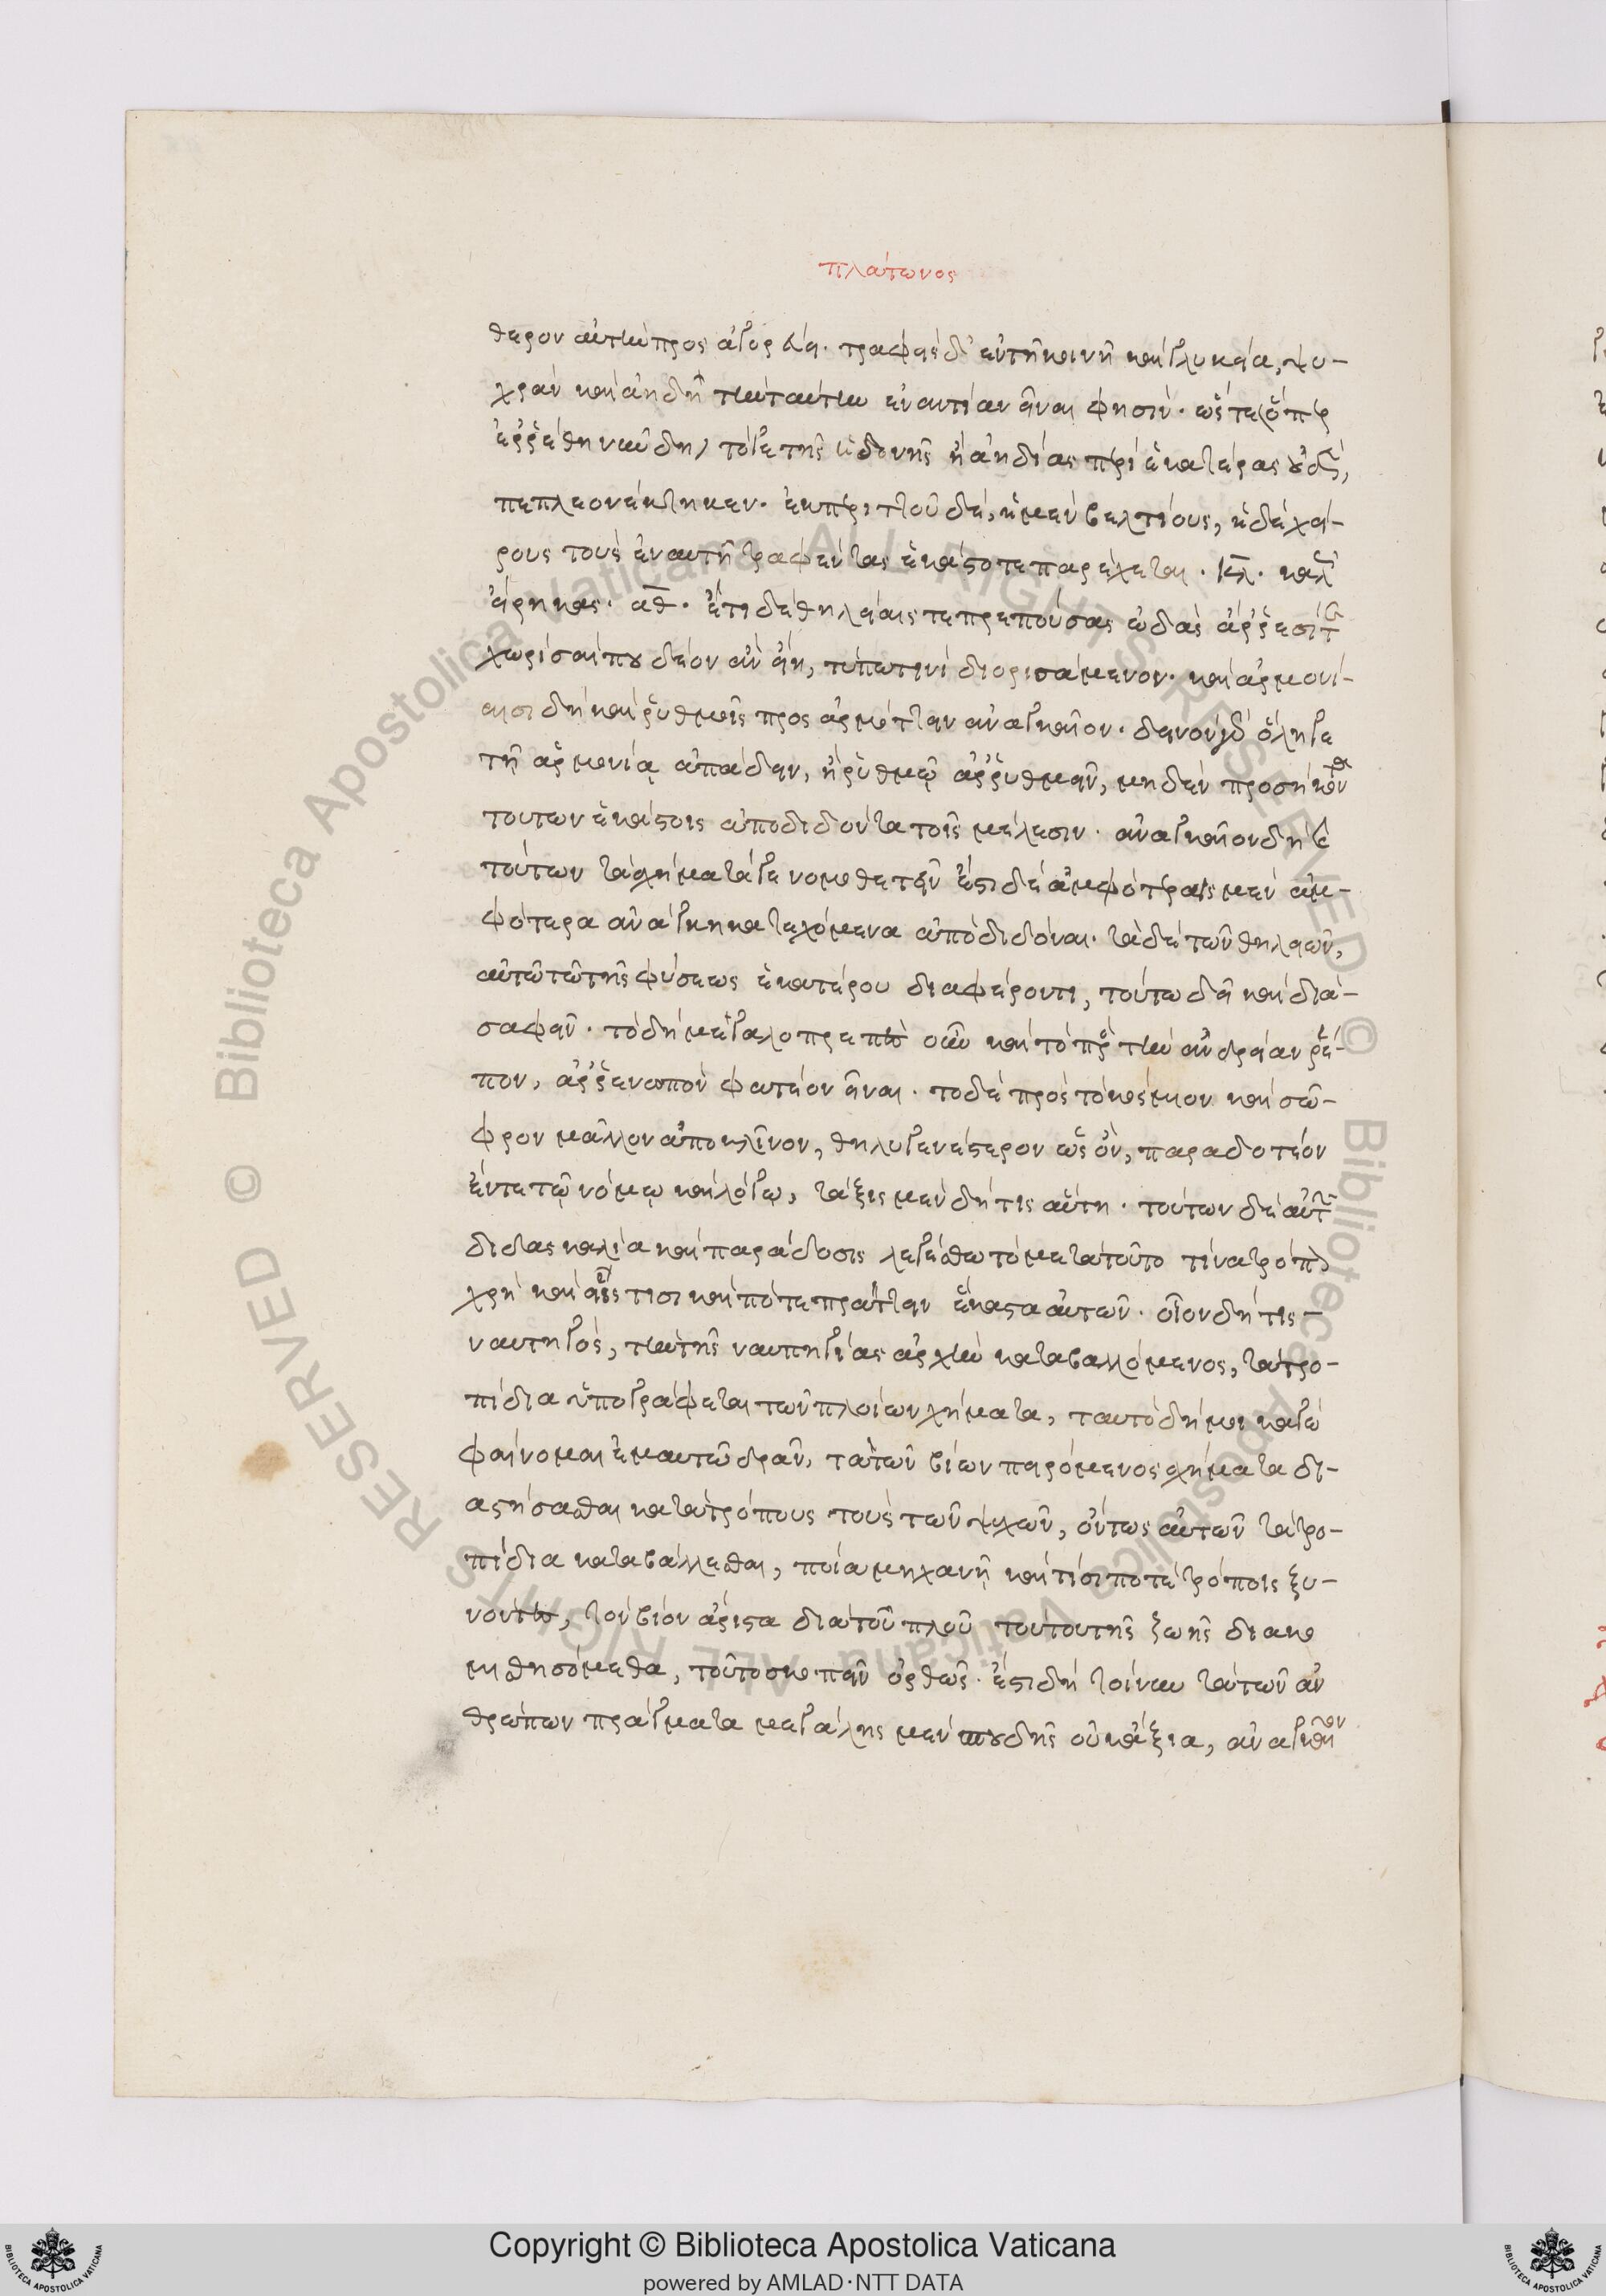 πλάτωνος
θερον αὐτὴν προσαγορεύει. τραφεὶς δ' ἐν τῆ κοινῆ καὶ γλυκεία, ψυ-
χρὰν καὶ ἀηδῆ τὴν ταύτη ἐναντίαν εἶναι φησίν. ὥστε ὅπερ
ἐρρέθη νῦν δὴ, τό γε τῆς ἡδονῆς ἢ ἀηδίας περὶ ἑκατέρας οὐδὲν,
πεπλεονέκτηκεν. ἐκ περιττοῦ δὲ, ἡ μὲν βελτίους, ἡ δὲ χεί-
ρους τοὺς ἐν αὐτῆ τραφέντας ἑκάστοτε παρέχεται. κλ. καλῶς
εἴρηκας. αθ. ἔτι δὲ θηλείαις τε πρεπούσας ὠδὰς ἄρρεσί τε
χωρίσαι που δέον ἂν εἴη, τύπω τινὶ διορισάμενον. καὶ ἁρμονί-
αισι δὴ καὶ ῥυθμοῖς προσαρμόττειν ἀναγκαῖον. δεινὸν γὰρ ὅλη γε
τῇ ἁρμονίᾳ ἀπάδειν, ἢ ῥυθμῷ ἀρρυθμεῖν, μηδὲν προσήκοντα
τούτων ἑκάστοις ἀποδιδόντα τοῖς μέλεσιν. ἀναγκαῖον δὴ καὶ
τούτων τὰ σχήματά γε νομοθετεῖν ἔστι δὲ ἀμφοτέραις μὲν ἀμ-
φότερα ἀνάγκη κατεχόμενα ἀποδιδόναι. τὰ δὲ τῶν θηλειῶν,
αὐτῶ τῶ τῆς φύσεως ἑκατέρου διαφέροντι, τούτω δεῖ καὶ δια-
σαφεῖν. τὸ δὴ μεγαλοπρεπὲς οὖν καὶ τὸ πρὸς τὴν ἀνδρείαν ῥέ-
πον, ἀρρενωπὸν φατέον εἶναι. τὸ δὲ πρὸς τὸ κόσμιον καὶ σῶ-
φρον μᾶλλον ἀποκλῖνον, θηλυγενέστερον ὡς ὂν, παραδοτέον
ἔν τε τῷ νόμῳ καὶ λόγω, τάξις μὲν δή τις αὕτη. τούτων δὲ αὐτῶν
διδασκαλία καὶ παράδοσις λεγέσθω τὸ μετὰ τοῦτο τίνα τρόπον
χρὴ καὶ οἷστισι καὶ πότε πράττειν ἕκαστα αὐτῶν. οἷον δή τις
ναυπηγὸς, τὴν τῆς ναυπηγίας ἀρχὴν καταβαλλόμενος, τὰ τρο-
πίδια ὑπογράφεται τῶν πλοίων σχήματα, ταυτὸ δή μοι κἀγὼ
φαίνομαι ἐμαυτῶ δρᾶν, τὰ τῶν βίων πειρώμενος σχήματα δι-
αστήσασθαι κατὰ τρόπους τοὺς τῶν ψυχῶν, ὄντως αὐτῶν τὰ τρο-
πίδια καταβάλλεσθαι, ποία μηχανῆ καὶ τίσι ποτὲ τρόποις ξυ-
νόντες, τὸν βίον ἄριστα διὰ τοῦ πλοῦ τούτου τῆς ζωῆς διακο
μισθησόμεθα, τοῦτο σκοπεῖν ὀρθῶς. ἔστι δὴ τοίνυν τὰ τῶν ἀν
θρώπων πράγματα μεγάλης μὲν σπουδῆς οὐκ ἄξια, ἀναγκαῖον
Copyright © Biblioteca Apostolica Vaticana
powered by AMLAD·NTT DATA